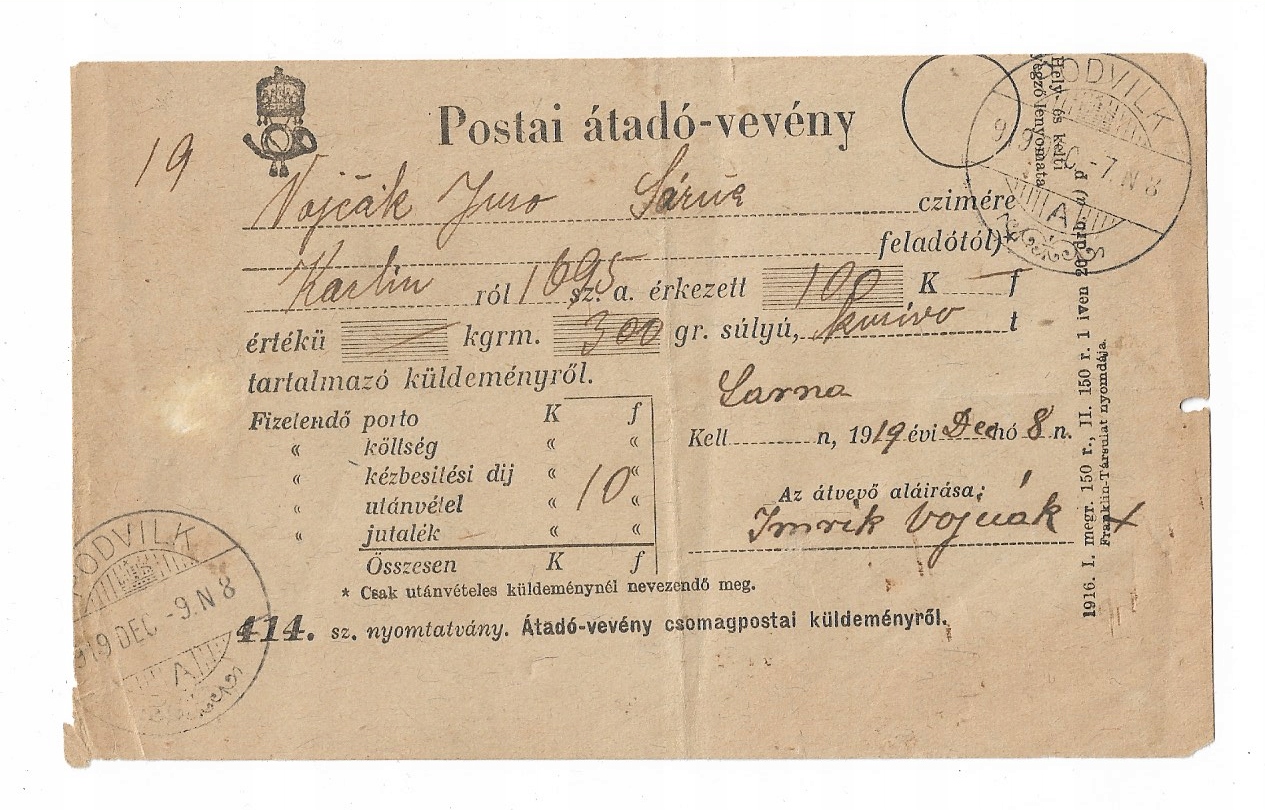 Postai átadó-vevény
19
Vojčák Juro Sárna czimére
feladótól)*
Karlin ról 1695 sz. a. érkezett 100 K — f
értékü — kgrm. 300 gr. súlyú, t
tartalmazó küldeményről.
Fizetendő porto K f
„ költség „ „
„ kézbesitési dij „ 10 „
„ utánvétel „ „
„ jutalék „ „
Összesen K f
Sarna
Kelt n, 1919 évi Dec hó 8 n.
Az átvevő aláirása:
Imrik Vojčák x
* Csak utánvételes küldeménynél nevezendő meg.
414. sz. nyomtatvány. Átadó-vevény csomagpostai küldeményről.
Hely- és kelti
végző lenyomata
PODVILK
919 DEC -7. N 8
A
PODVILK
919 DEC -9. N 8
A
1916. I. megr. 150 r., II. 150 r. 1 iven 20 drb.
Franklin-Társulat nyomdája.